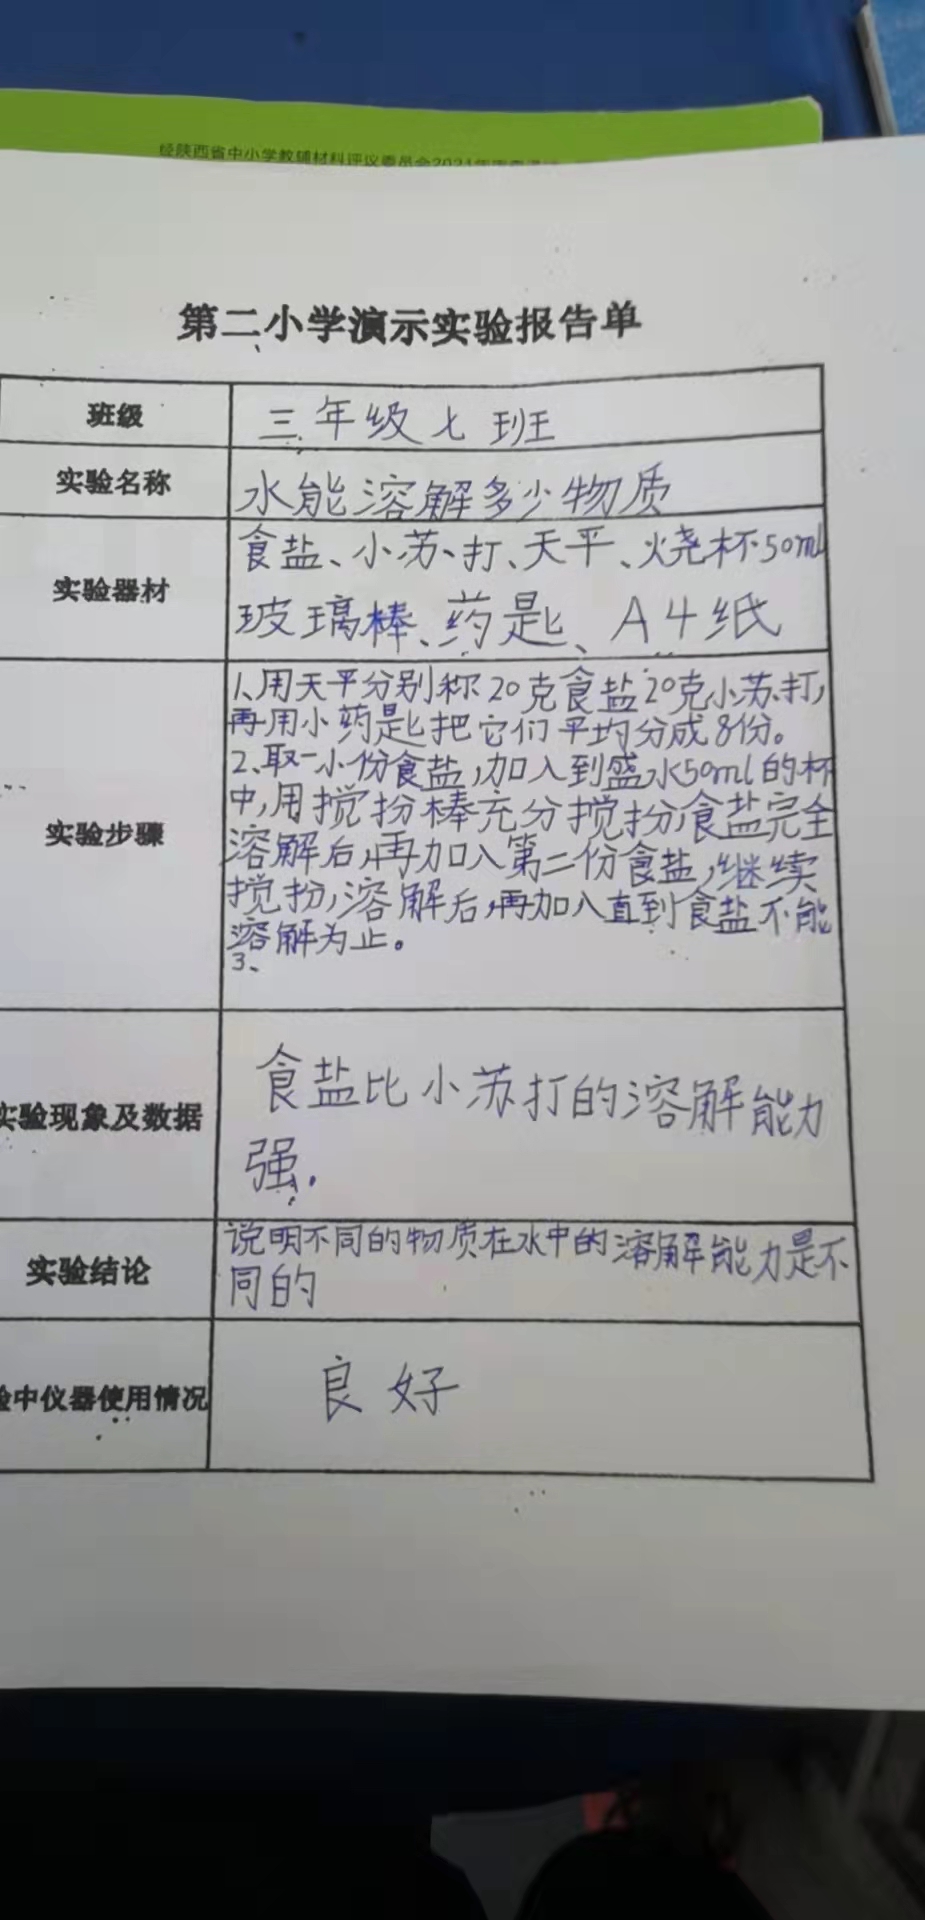 经陕西省中小学教辅材料评议委员会2021年审查通过
第二小学演示实验报告单
班级
三年级七班
实验名称
水能溶解多少物质
实验器材
食盐、小苏打、天平、烧杯50ml
玻璃棒、药匙、A4纸
实验步骤
1、用天平分别称20克食盐20克小苏打,
再用小药匙把它们平均分成8份。
2、取一小份食盐,加入到盛水50ml的杯
中,用搅扮棒充分搅扮,食盐完全
溶解后,再加入第二份食盐,继续
搅扮,溶解后,再加入直到食盐不能
溶解为止。
3、
实验现象及数据
食盐比小苏打的溶解能力
强.
实验结论
说明不同的物质在水中的溶解能力是不
同的
验中仪器使用情况
良好